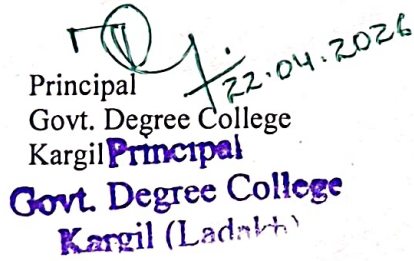 22.04.2026
Principal
Govt. Degree College
Kargil Principal
Govt. Degree College
Kargil (Ladakh)